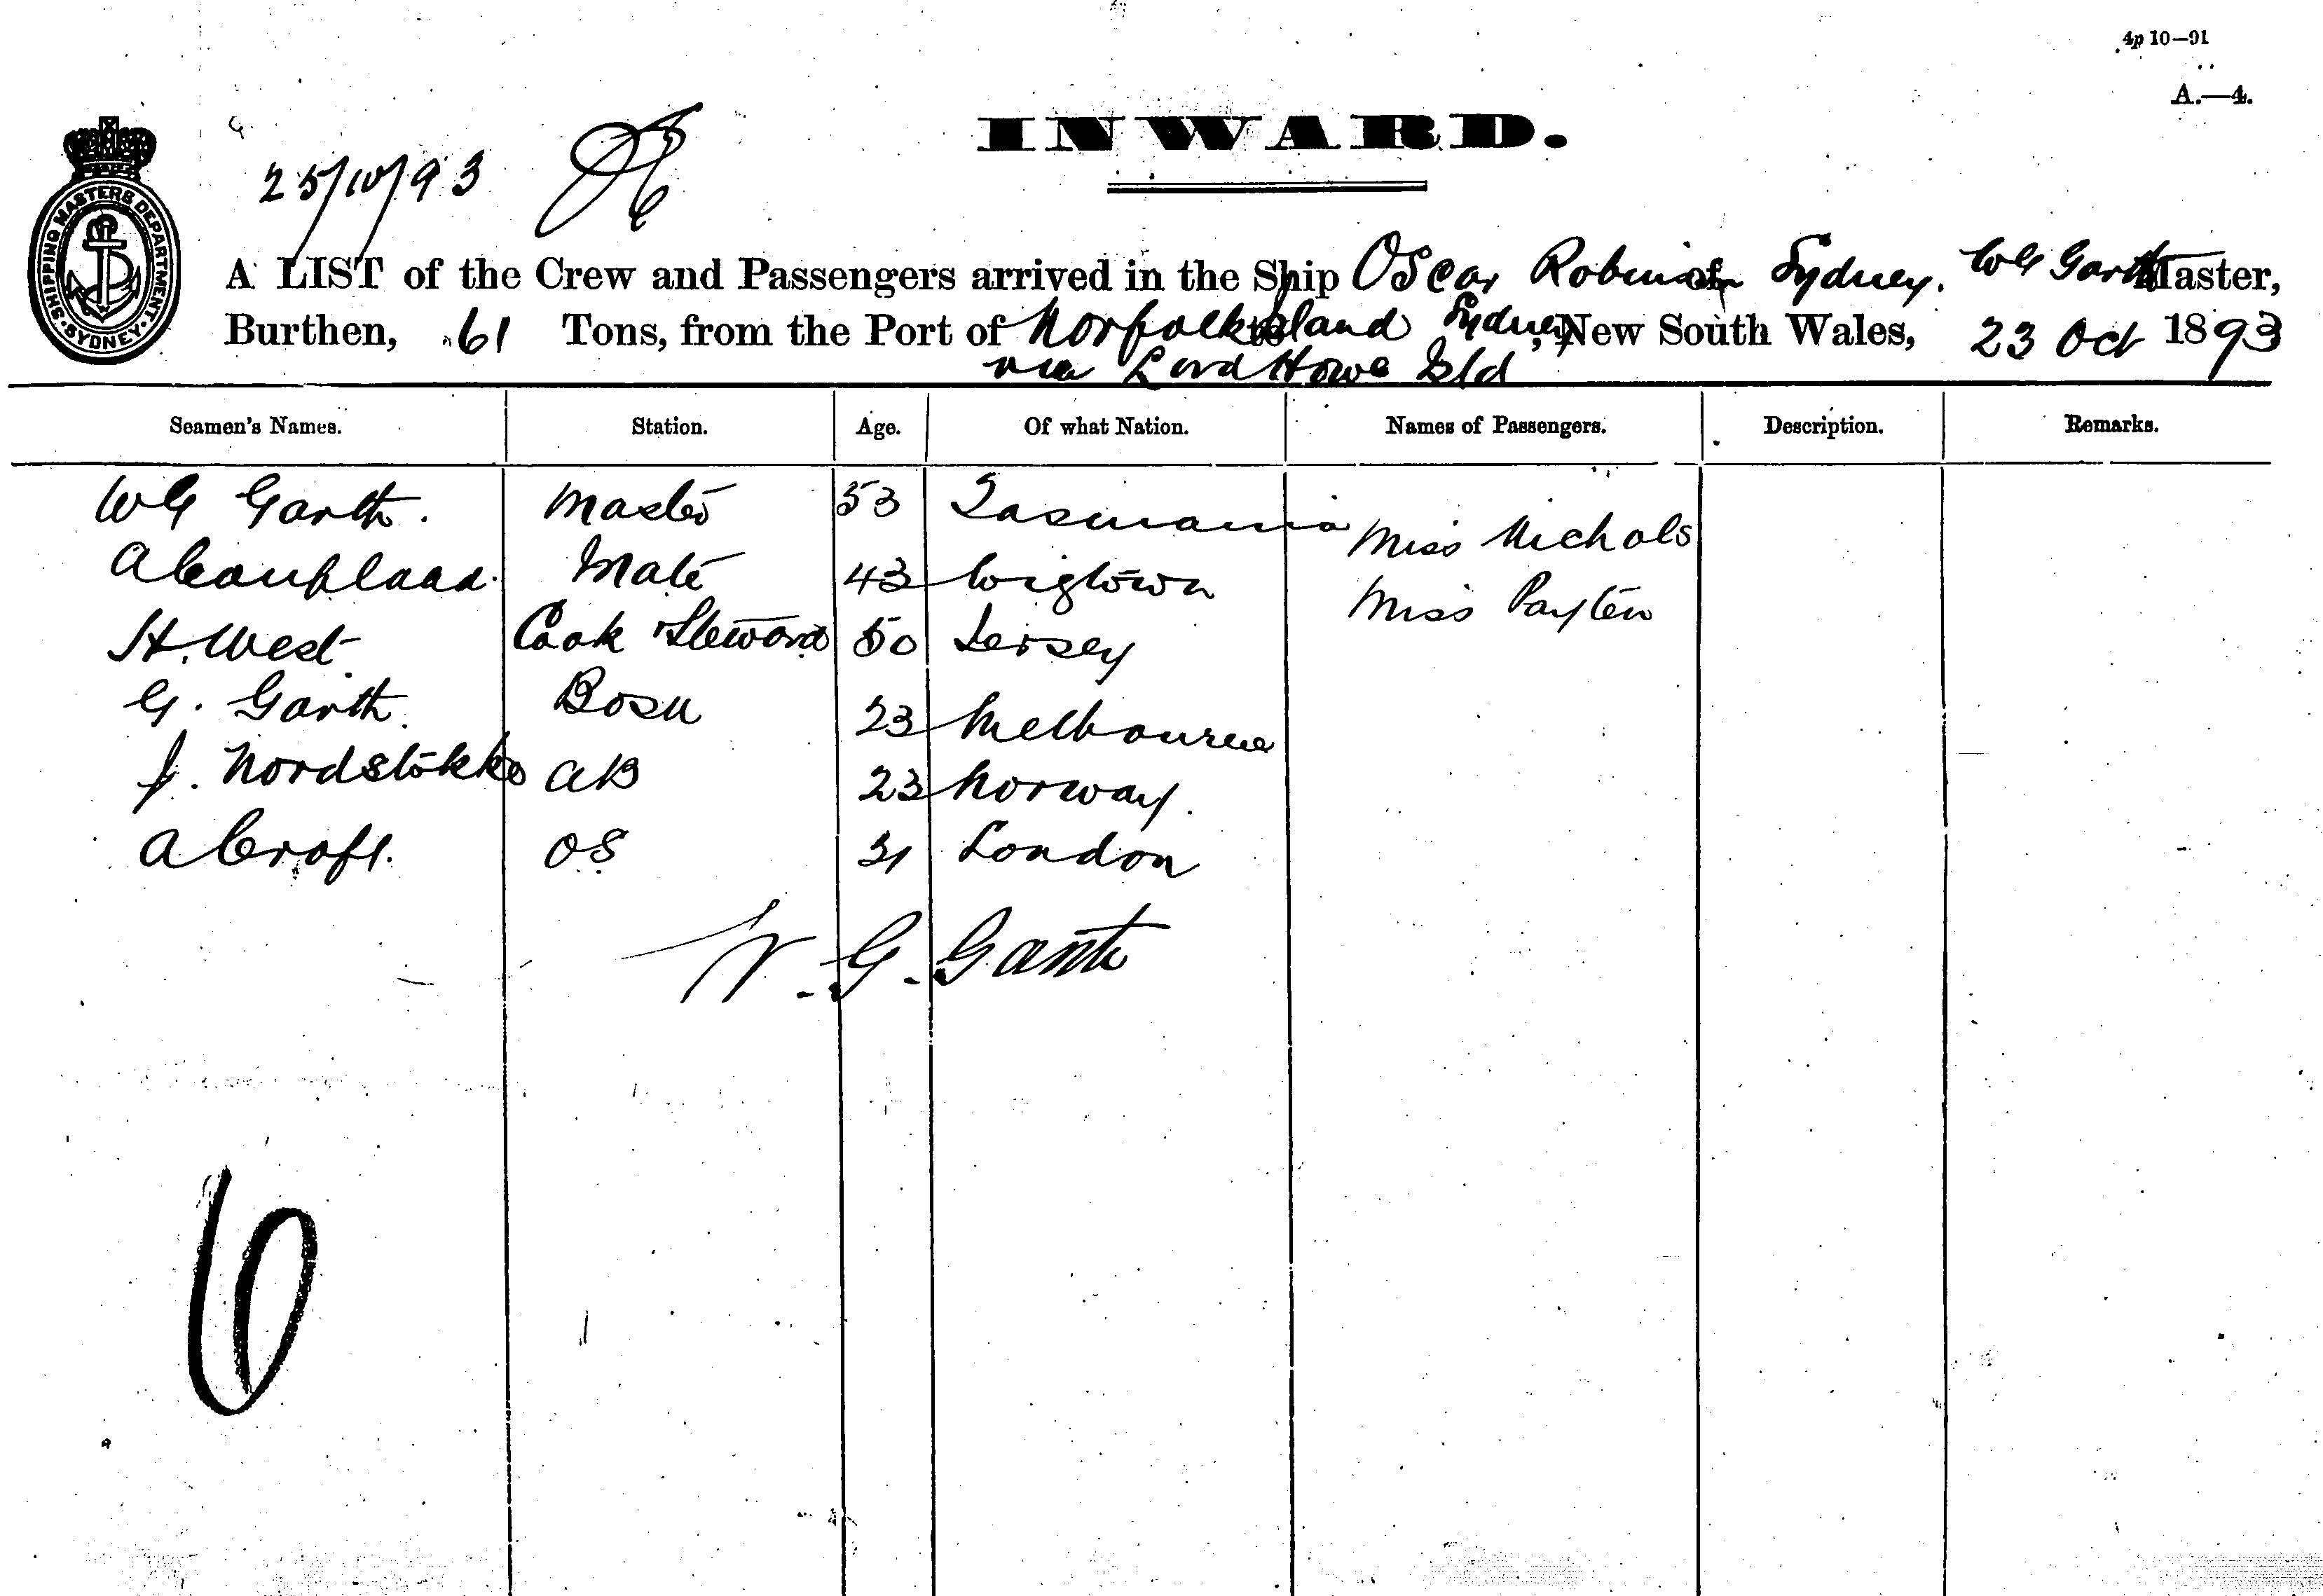 4p 10—91
A.—4.
INWARD.
SHIPPING MASTERS DEPARTMENT. SYDNEY.
25/10/93
A LIST of the Crew and Passengers arrived in the Ship Oscar Robinson of Sydney. WG Garth Master,
Burthen, 61 Tons, from the Port of Norfolk Island Sydney, New South Wales, 23 Oct 1893
via Lord Howe Isld
Seamen's Names. Station. Age. Of what Nation. Names of Passengers. Description. Remarks.
WG Garth. Master 53 Tasmania Miss Nichols
A Mate 43 Wigtown Miss Payten
H. West Cook Steward 50 Jersey
G. Garth. Bosn 23 Melbourne
J. Nordstokke AB 23 Norway.
A Croft. OS 21 London
W. G. Garth
6